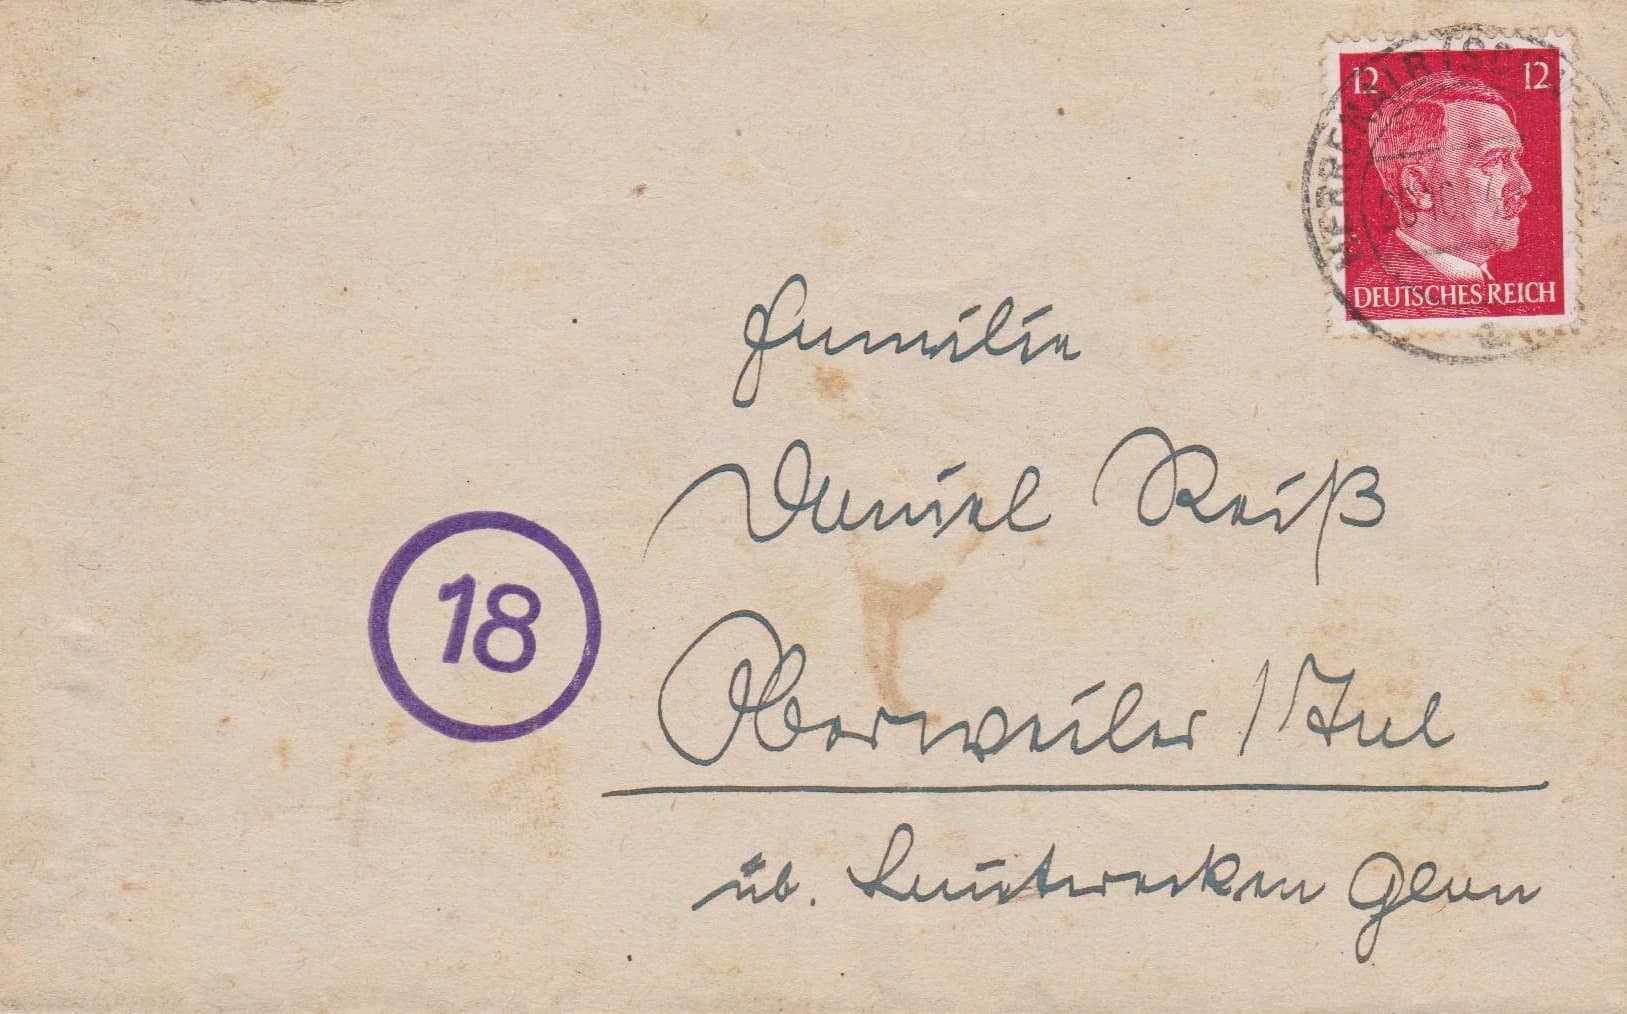 12 12
DEUTSCHES REICH
2
Familie
Daniel Reiß
18
Oberweiler / Tal
üb. Lauterecken Glan